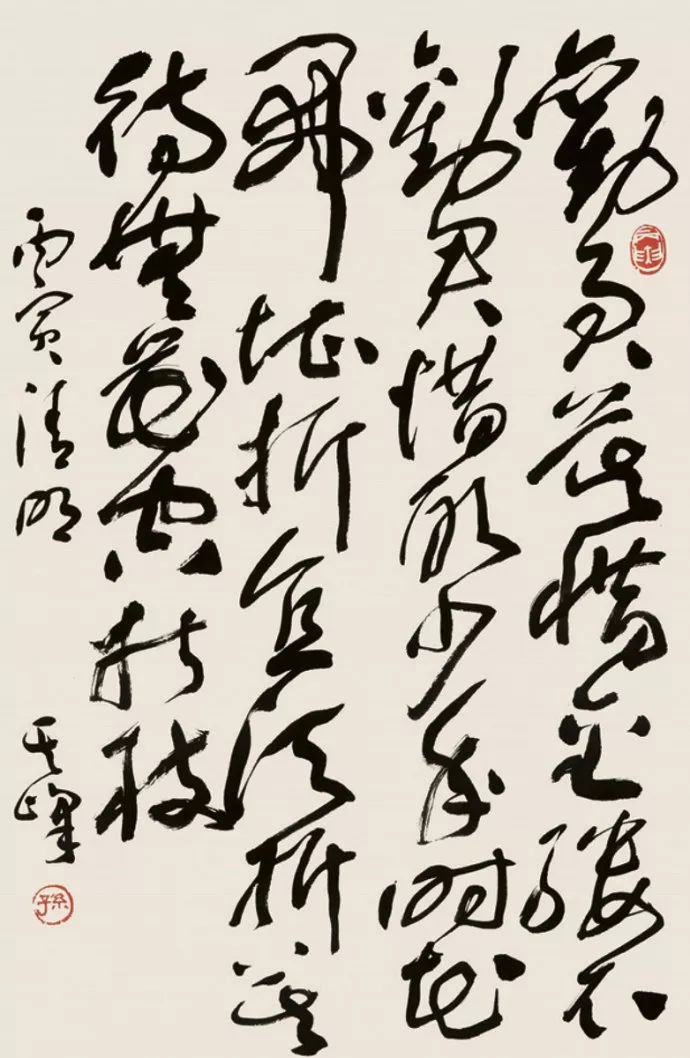 勸君莫惜金縷衣
勸君惜取少年時花
開堪折直須折莫
待無花空折枝
丙寅清明 其峰
孫